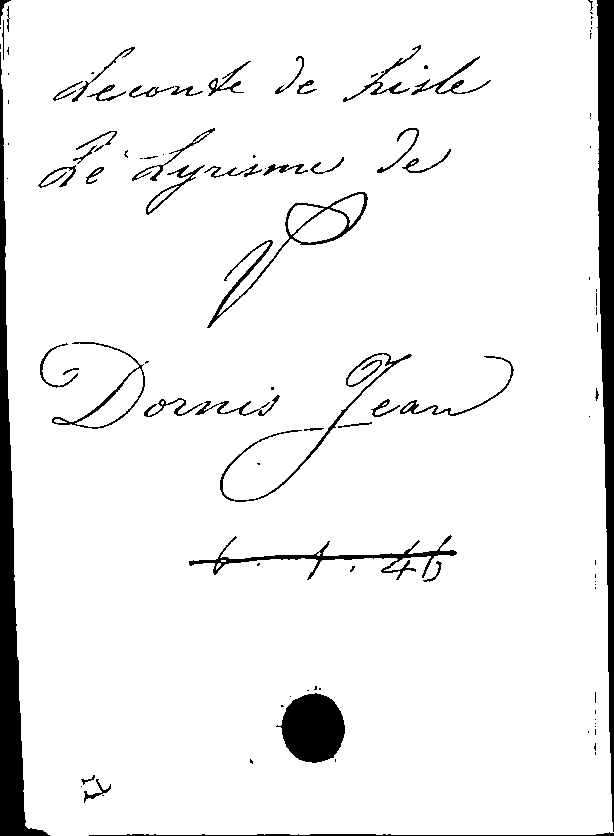 Leconte de Lisle
Le Lyrisme de
Dornis Jean
6. 1. 46